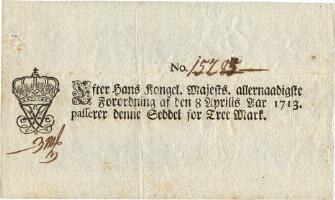 No. 15285
Efter Hans Kongel. Majests. allernaadigste
Forordning af den 8 Aprilis Aar 1713.
passerer denne Seddel for Tree Mark.
3 mɮ